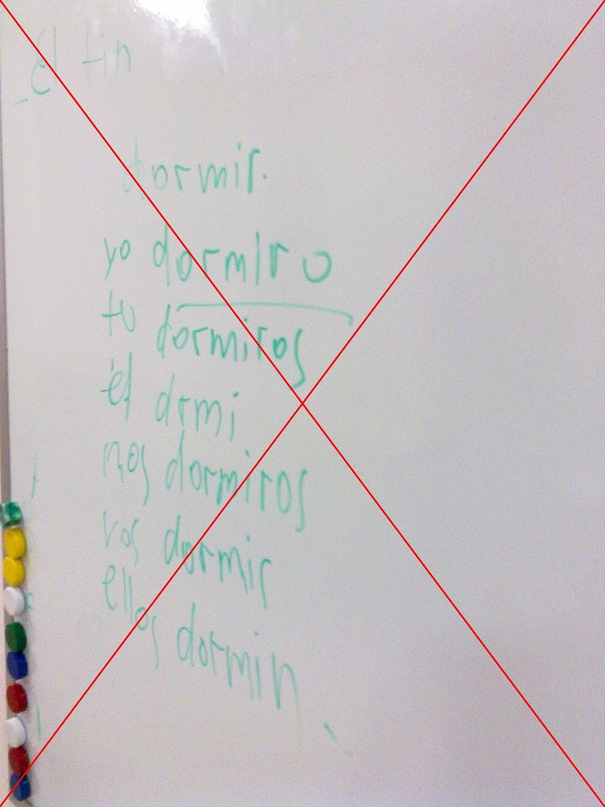 El fin
dormir.
yo dormiro
tu dormiros
él drmi
nos dormiros
vos dormir
ellos dormin